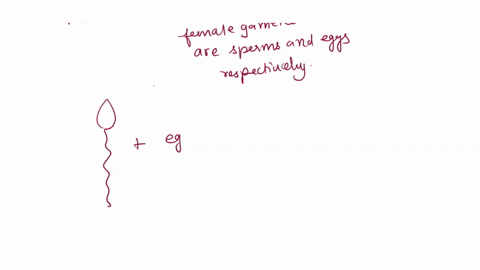 female
are sperms and eggs
respectively.
+ eg